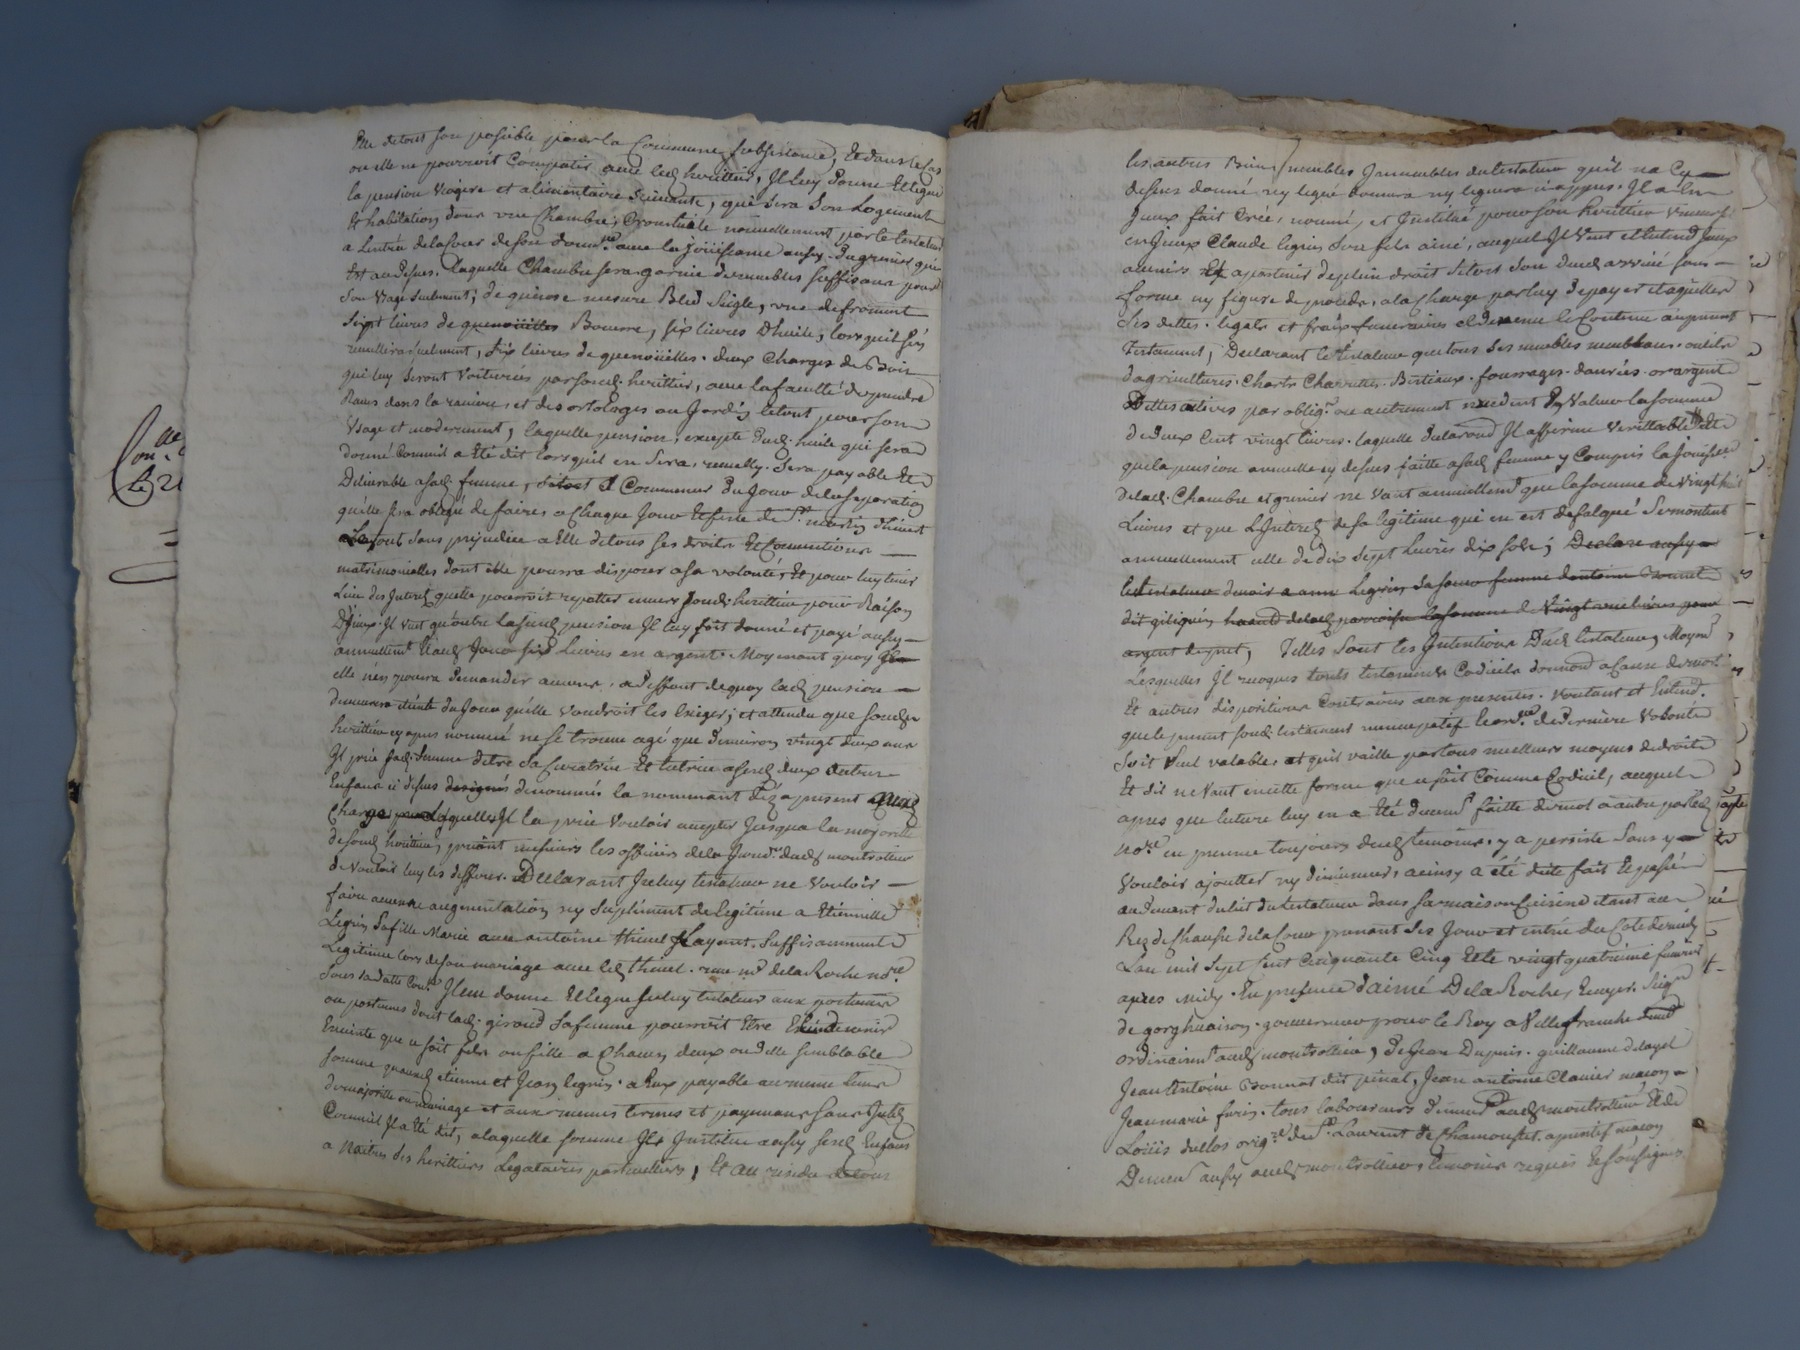 Elle de tout son possible pour la Commune subsistance, Et dans le Cas
ou elle ne pourroit Compatir avec led heritier, Il luy donne Et legue
la pension viagere et alimentaire suivante, qui sera Son Logement
Et habitation dans une Chambre Construite nouvellement par le testateur
a l'entrée de la Cour de son dom.lle avec la joüissance aussy du grenier qui
Est au dessus. laquelle Chambre sera garnie de meubles suffisans pour
Son usage seulement; de quinze mesure Bled Seigle, une de froment
Sept livres de Beurre, six livres D'huile, lors qu'il s'en
Six livres de quenoüilles. deux Charges de Bois
qui luy seront voiturées par sond. heritier, avec la faculté de prendre
Raves dans la raviere, et des ortolages au Jardin le tout pour son
Usage et moderement, laquelle pension, excepté lad. huile qui sera
donné Comme il a Eté dit lors qu'il en Sera, Sera payable Et
Delivrable a sad. femme, a Commencer Du Jour de la separation
qu'elle sera obligé de faire, a Chaque Jour et feste de St. martin d'hivert
Le tout Sans prejudice a Elle de tous ses droits Et Conventions
matrimonielles dont elle pourra disposer a sa volonté, Et pour luy tenir
Lieu des Interet quelle pourroit repetter envers sond. heritier pour Raison
D'Iceux. Il veut qu'outre la susd. pension Il luy soit donné et payé aussy
annuellemt. aud. Jour six Livres en argent. Moyenant quoy
elle n'en pourra demander aucuns, a deffaut de quoy lad. pension
demeurera éteinte du Jour qu'elle voudroit les exiger; et attendu que sond.
heritier cy apres nommé ne se trouve agé que d'environ vingt deux ans
Il prie sad. femme d'etre sa Curatrice Et tutrice a sesd. deux autres
Enfans ci dessus denommés la nommant dez a present
Charge Laquelle Il la prie vouloir accepter Jusqu'a la majorité
de sond. heritier, priant messieurs les officiers de la Jurid.on dud. montrotier
de vouloir luy les defferer. Declarant Iceluy testateur ne vouloir
faire aucune augmentation ny Suplément de legitime a Etiennette
Legrin Sa fille Mariée avec antoine thinel L'ayant Suffisamment
Legitimée lors de son mariage avec led. thinel. reçu me. de la Roche nore.
Sous sa datte. Item donne Et legue Iceluy testateur aux postumes
ou postumes dont lad. giroud Sa femme pourroit Etre Et devenir
Enceinte que ce soit fils ou fille a Chacun deux ou d'elle semblable
somme qu'auxd. etienne et Jean legrin. a Eux payable au meme tems
de majorité ou mariage et aux memes termes et payemens sans Interet
Comme Il a Eté dit, a laquelle somme Il Institue aussy sesd. Enfans
a Naitre ses heritiers Legataires particuliers, Et Au residu de tous
les autres Biens meubles Immeubles du testateur qu'il na Cy
dessus donné ny legué donnera ny leguera ci apres. Il a
Iceux fait Créé, nommé, et Institué pour son heritier Universel
en Iceux Claude legrin Son fils ainé, auquel Il Veut et Entend Iceux
avenir Et apartenir de plein droit Sitost Son deced arrivé sans
forme ny figure de procedé, a la Charge par luy de payer et aquitter
Ses dettes. legats et fraix funeraires et de le Contenu au present
Testament, Declarant le testateur que tous Ses meubles meublans. outils
d'agricultures. Chars Charrettes. Bestiaux. fourrages. danrées. or argent
Dettes actives par oblig.on ou autrement nexcedent En Valeur la somme
de deux Cent vingt livres. laquelle declaration Il afferme Veritable Et
que la pension annuelle cy dessus faitte a sad. femme y Compris la Joüissce.
de lad. Chambre et grenier ne vaut annuellemt. que la somme de vingt huit
Livres et que L'Interet de sa legitime qui en est defalqué Se montent
annuellement celle de dix Sept Livres dix sols; Declare aussy
le testateur devoir a anne Legrin Sa soeur femme d'antoine
dit haord de lad. parroisse la somme de Vingt une livres pour
argent de pret, Telles Sont les Intentions Dud. testateur, Moyent.
Lesquelles Il revoque touts testaments Codicils donnaons a Cause de mort
Et autres dispositions Contraires aux presentes. Voulant et Entend.
que le present soud. testament nuncupatif et ordce. de derniere Volonté
Soit Seul valable. et qu'il vaille par tous meilleurs moyens de droit
Et S'il ne Vaut en cette forme que ce soit Comme Codicil, auquel
apres que lecture luy en a Eté duemt. faitte de mot a autre par led.
nore. en presence toujours desd. temoins. y a persisté Sans y
Vouloir ajoutter ny diminuer, ainsy a été dicté fait Et passé
au devant du lit du testateur dans sa maison Cuisine étant au
Rez de Chaussée de la Cour prenant Ses Jour et entrée du Coté de midy
L'an mil Sept Cent Cinquante Cinq Et le vingt quatrieme fevrier
apres midy. En presence d'aimé De la Roche, Ecuyer. Seigr.
de gouverneur pour le Roy a Villefranche
ordinairemt. aud. montrottier, De Jean Dupuis. guillaume delayel
Jean Antoine Bonnat dit pinat, Jean antoine Clavier maçon
Jean marie furin. tous laboureurs demeurt. aud. montrottier Et de
Loüis duclos orige. de St. Laurent de Chamousset. aprentif maçon
Demeurt. aussy aud. montrottier, temoins requis Et soussignés